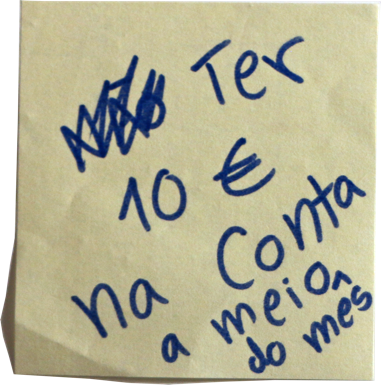 Ter
10 €
na conta
a meio
do mês